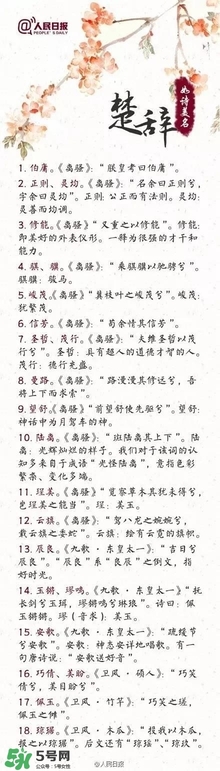 @人民日报
PEOPLE'S DAILY
如诗美名
楚辞
1. 伯庸。《离骚》:“朕皇考曰伯庸”。
2. 正则、灵均。《离骚》:“名余曰正则兮,
字余曰灵均”。正则:公正而有法则。灵均:
灵善而均调。
3. 修能。《离骚》“又重之以修能”。修能:
即美好的外表仪形。一释为很强的才干和
能力。
4. 骐、骥。《离骚》:“乘骐骥以驰骋兮”。
骐骥:骏马。
5. 峻茂。《离骚》“冀枝叶之峻茂兮”。峻茂:
犹繁茂。
6. 信芳。《离骚》:“苟余情其信芳”。
7. 圣哲、茂行。《离骚》:“夫维圣哲以茂
行兮”。圣哲:具有超人的道德才智的人。
茂行:德行充盛。
8. 曼路。《离骚》“路漫漫其修远兮,吾
将上下而求索”。
9. 望舒。《离骚》“前望舒使先驱兮”。望舒:
神话中为月驾车的神。
10. 陆离。《离骚》:“斑陆离其上下”。陆
离:光辉灿烂的样子。我们对于该词的认
知多来自于成语“光怪陆离”,意指色彩
繁杂、变化多端。
11. 珵美。《离骚》“览察草木其犹未得兮,
岂珵美之能当”。珵:美玉。
12. 云旗。《离骚》:“驾八龙之婉婉兮,
载云旗之委蛇”。云旗:绘有云霓的旗帜。
13. 辰良。《九歌·东皇太一》:“吉日兮
辰良”。“辰良”系“良辰”之倒文,指
好时光。
14. 玉锵、璆鸣。《九歌·东皇太一》“抚
长剑兮玉珥,璆锵鸣兮琳琅”。诗曰:佩
玉锵锵。璆(音求):美玉。
15. 安歌。《九歌·东皇太一》:“疏缓节
兮安歌”。安歌:神态安详地唱歌。有一
句唐诗说:“安歌送好音”。
16. 巧倩、美盼。《卫风·硕人》:“巧笑
倩兮,美目盼兮”。
17. 佩玉。《卫风·竹竿》:“巧笑之瑳,
佩玉之傩”。
18. 琼琚。《卫风·木瓜》:“投我以木瓜,
报之以琼琚”。后文还有“琼瑶”、“琼玖”。
@人民日报
5号网